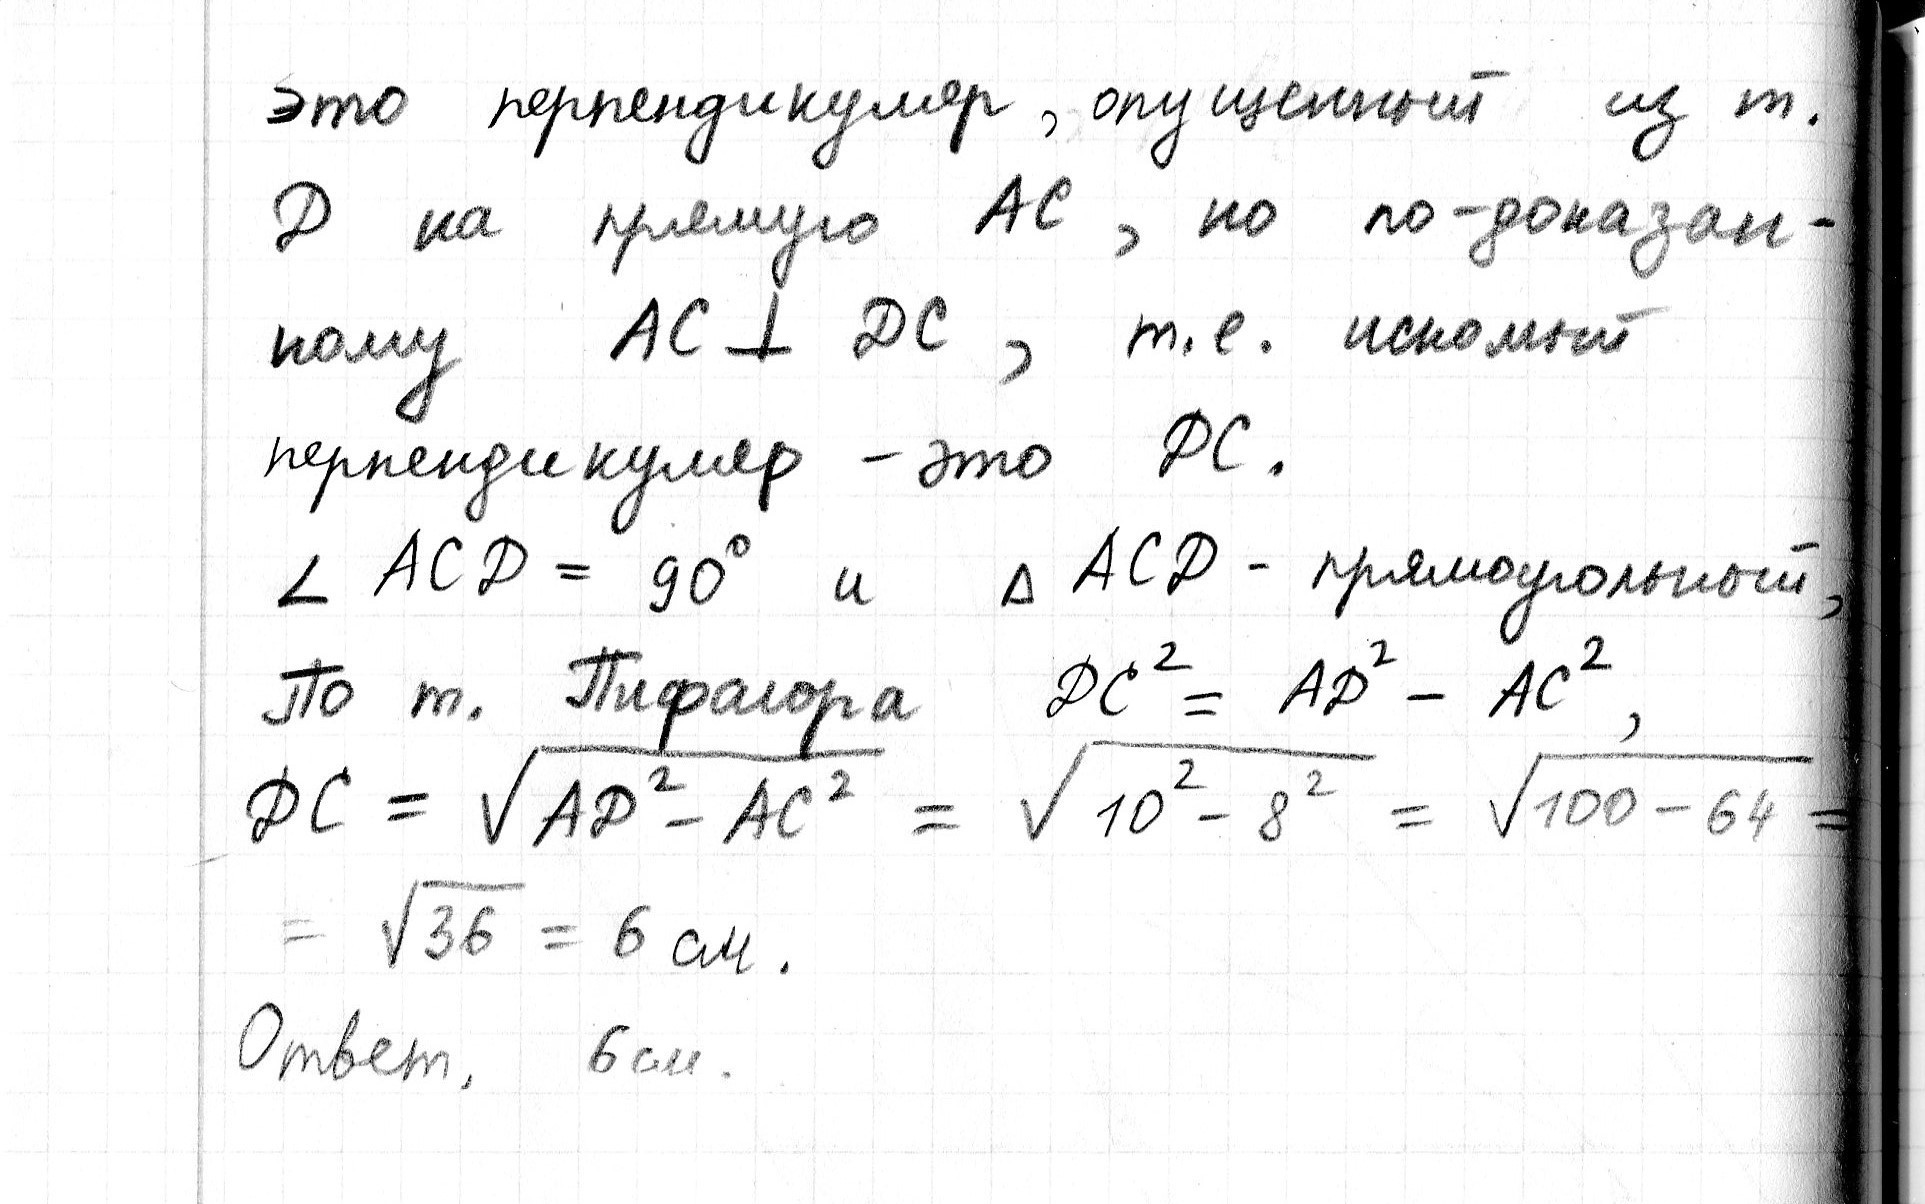 это перпендикуляр, опущенный из т.
D на прямую AC, но по-доказан-
ному AC ⊥ DC, т.е. искомый
перпендикуляр - это DC.
∠ ACD = 90° и △ ACD - прямоугольный,
По т. Пифагора DC² = AD² - AC²,
DC = √(AD² - AC²) = √(10² - 8²) = √(100 - 64) =
= √36 = 6 см.
Ответ. 6 см.